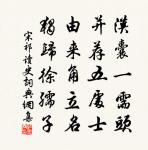 漢囊一需頭
并荐五處士
由來角立名
獨歸徐孺子
宋祁讀史詞典網集